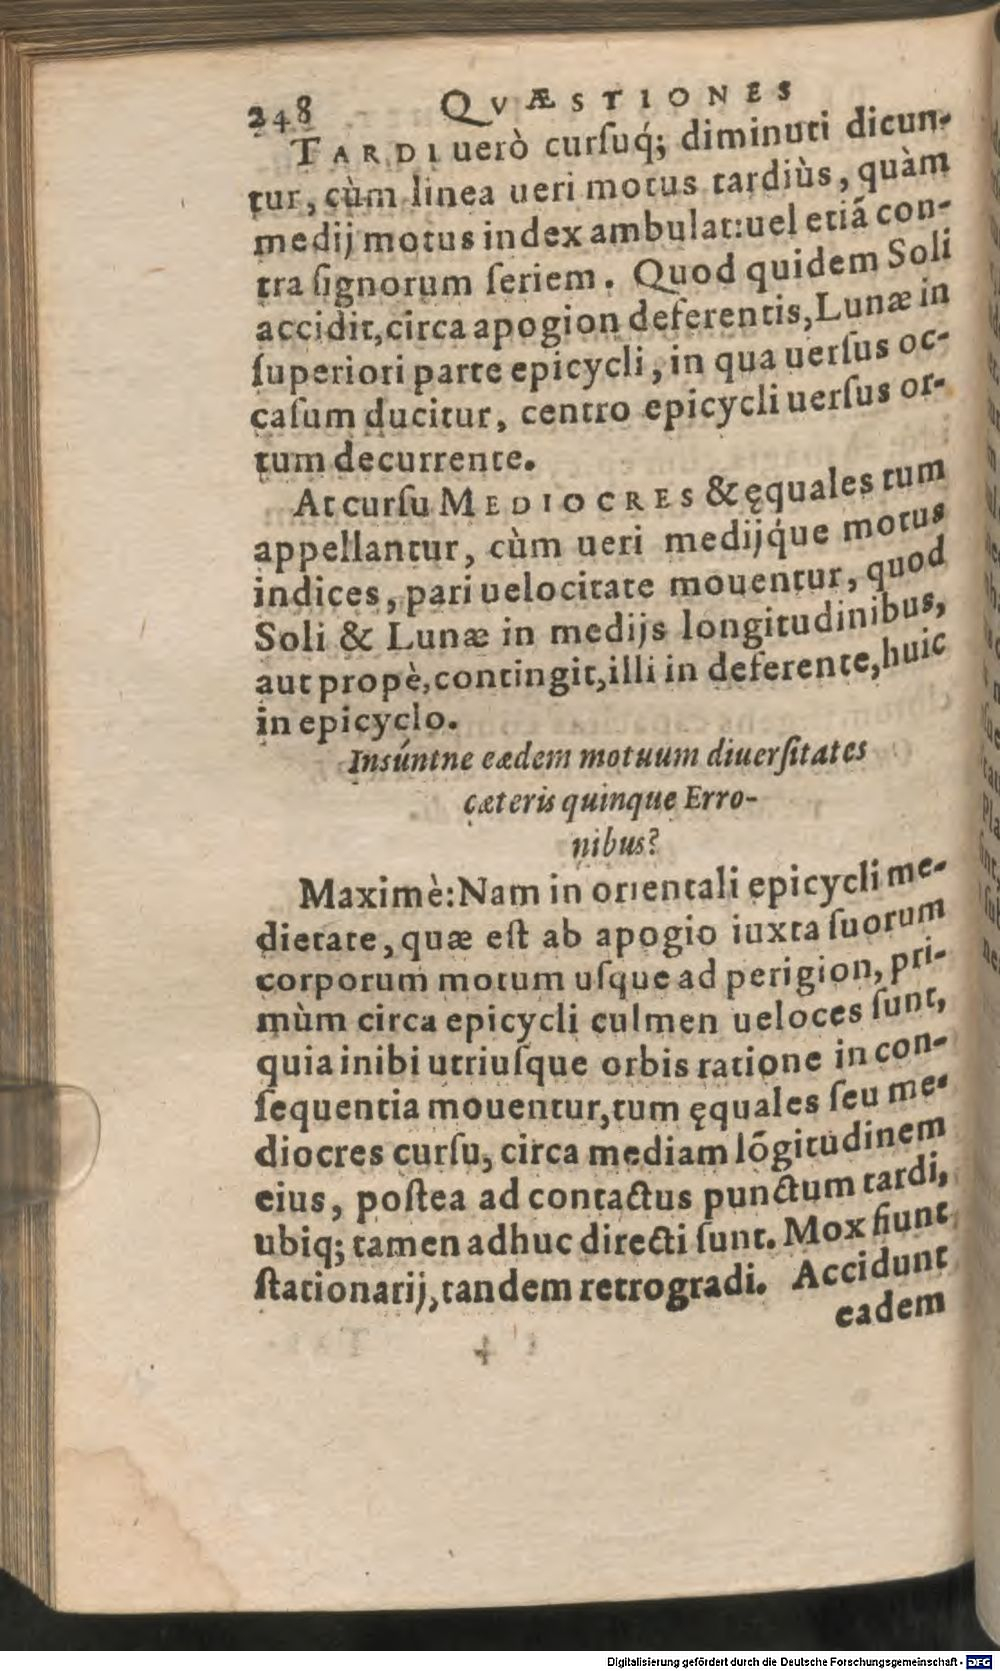 248 QVÆSTIONES
TARDI uerò curſuq́; diminuti dicun-
tur, cùm linea ueri motus tardiùs, quàm
medij motus index ambulat: uel etiã con-
tra ſignorum ſeriem. Quod quidem Soli
accidit, circa apogion deferentis, Lunæ in
ſuperiori parte epicycli, in qua uerſus oc-
caſum ducitur, centro epicycli uerſus or-
tum decurrente.
At curſu MEDIOCRES & ęquales tum
appellantur, cùm ueri medijq́ue motus
indices, pari uelocitate mouentur, quod
Soli & Lunæ in medijs longitudinibus,
aut propè, contingit, illi in deferente, huic
in epicyclo.
Insúntne eædem motuum diuerſitates
cæteris quinque Erro-
nibus?
Maximè: Nam in orientali epicycli me-
dietate, quæ eſt ab apogio iuxta ſuorum
corporum motum uſque ad perigion, pri-
mùm circa epicycli culmen ueloces ſunt,
quia inibi utriuſque orbis ratione in con-
ſequentia mouentur, tum ęquales ſeu me-
diocres curſu, circa mediam lõgitudinem
eius, poſtea ad contactus punctum tardi,
ubiq; tamen adhuc directi ſunt. Mox fiunt
ſtationarij, tandem retrogradi. Accidunt
eadem
Digitalisierung gefördert durch die Deutsche Forschungsgemeinschaft - DFG